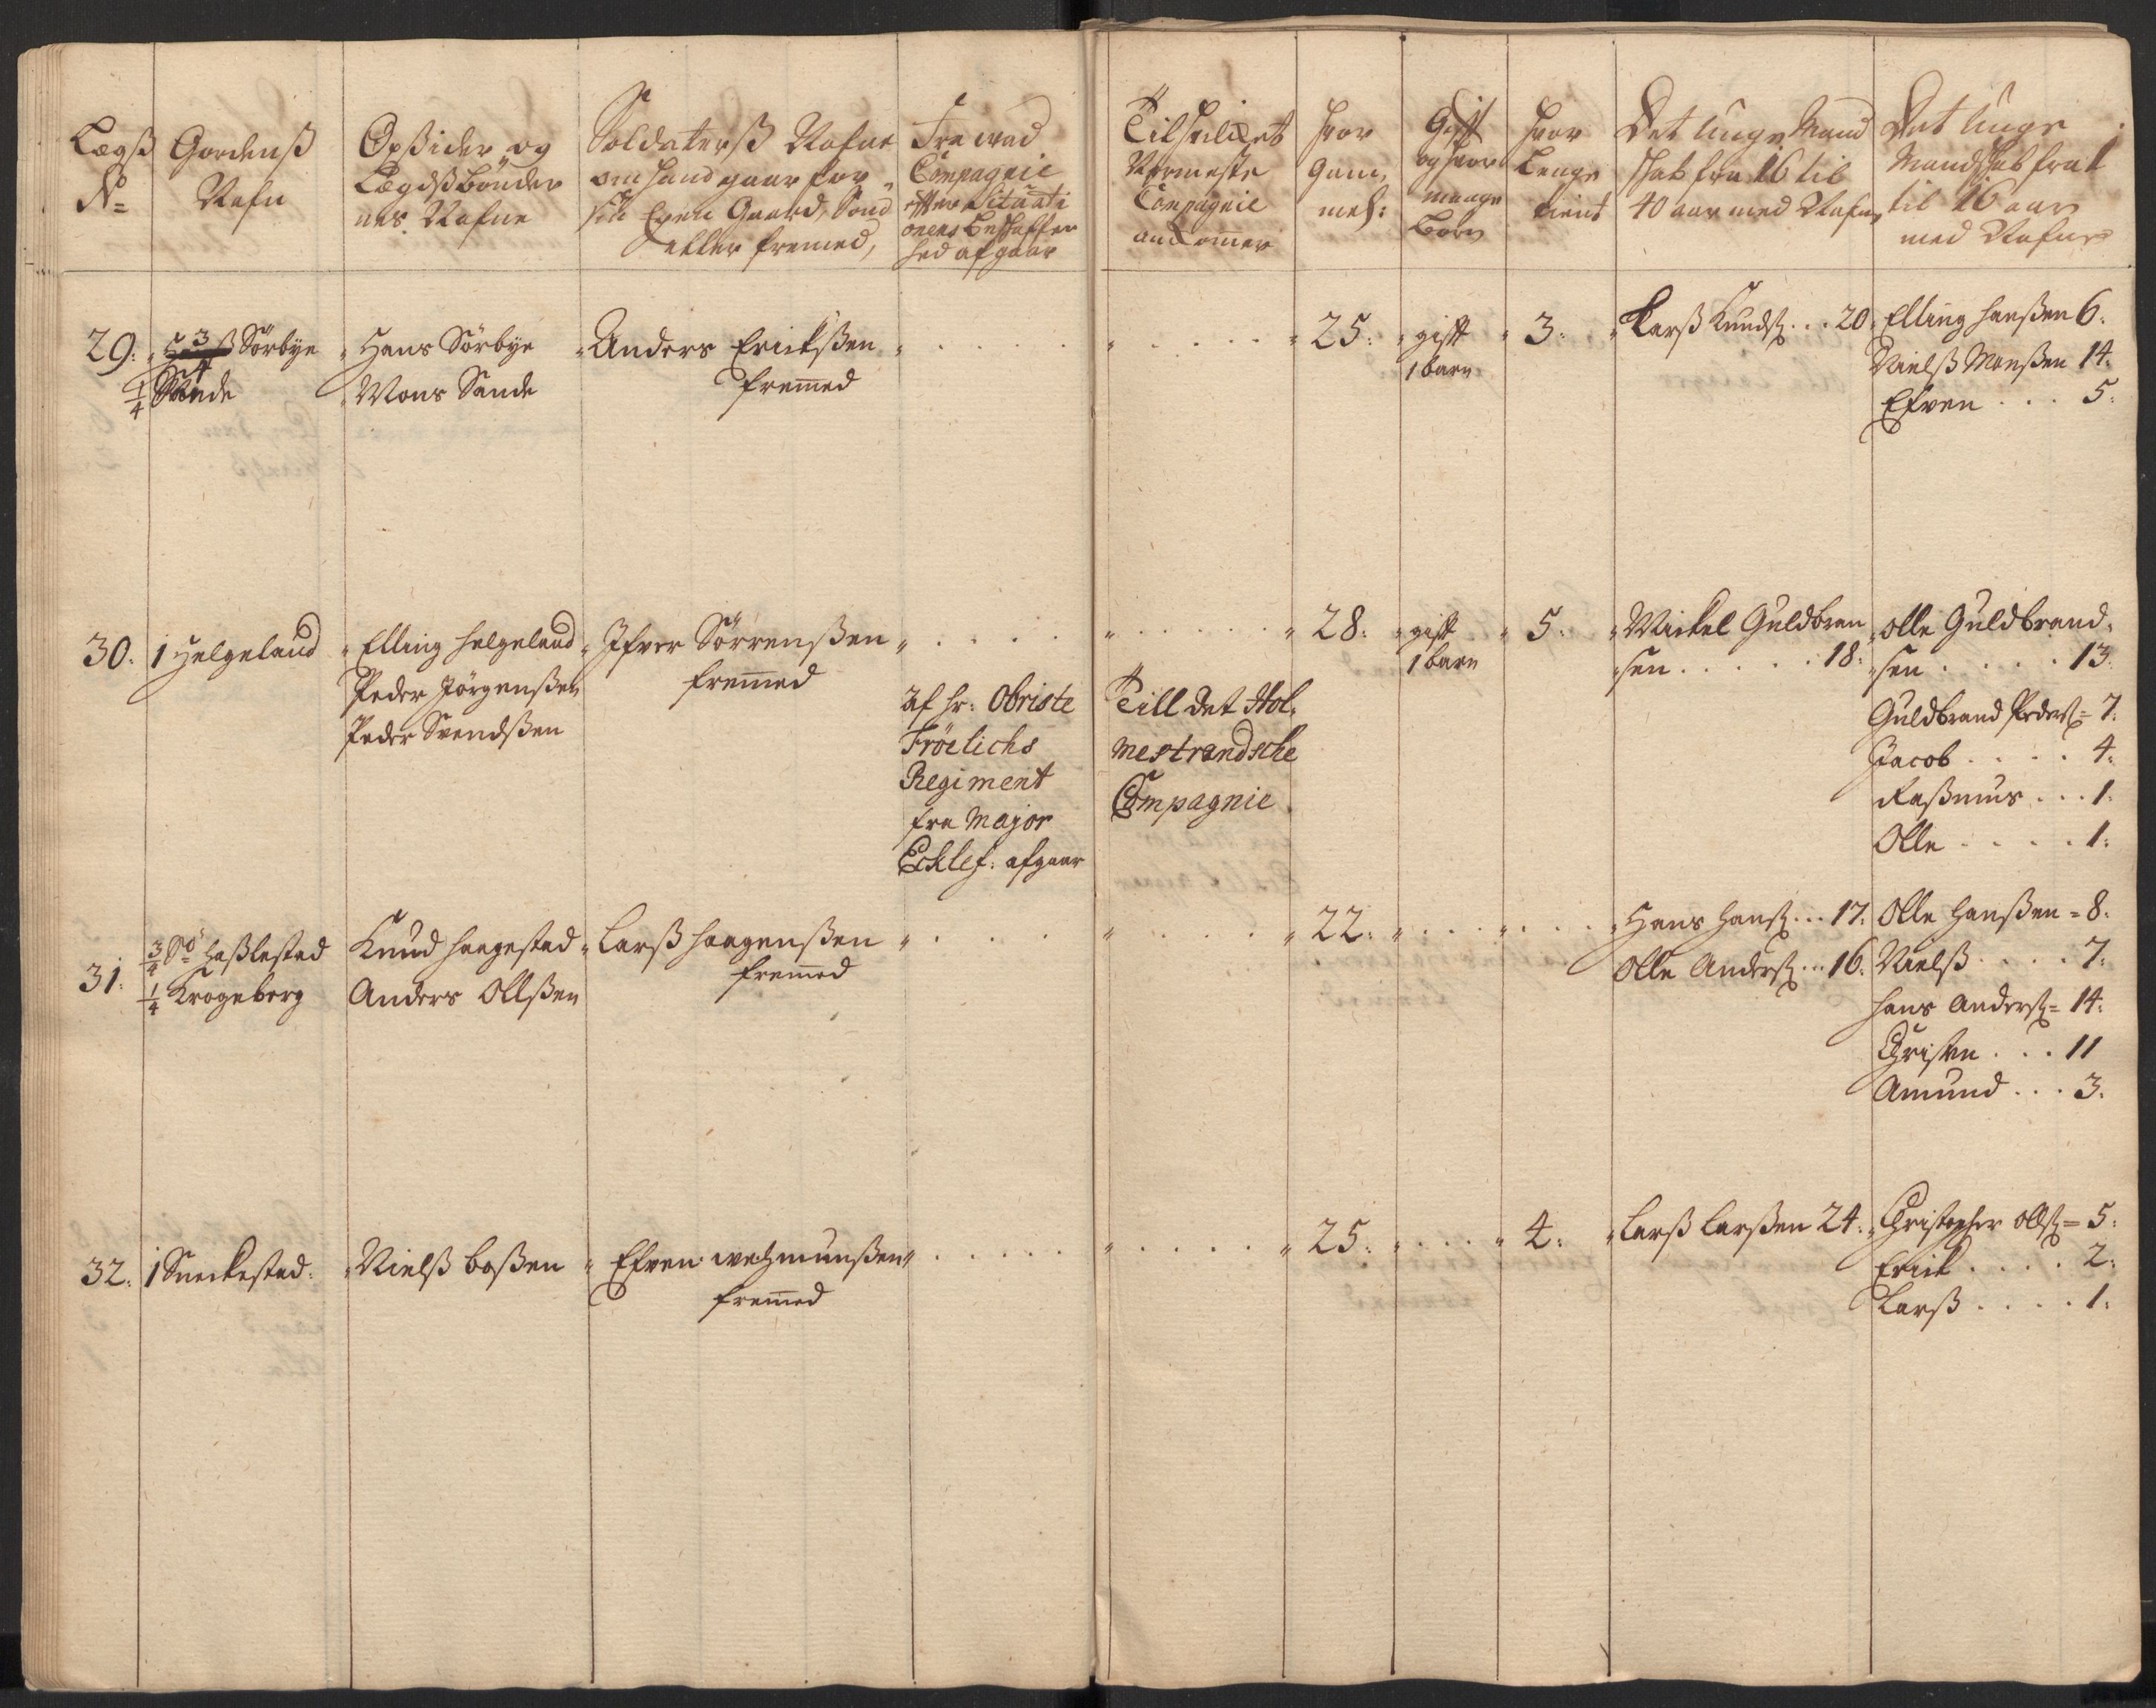 Lægß
No
Gordenß
Nafn
Opßider og
Lægdßbönder
nes Nafne
Soldaterß Nafne
om hand gaar for
sin Egen Gaard, Sönd
eller fremed,
Fra wad
Compagnie
efter Situati
onens Beskaffen
hed afgaar
Til hvilcket
Nermeste
Compagnie
ankommer
hvor
Gam,
mel:
Gift
og hvor
mange
Börn
hvor
Lenge
tient
Det unge Mand
skab fra 16 til
40 aar med Nafn
Det unge
Mandskab fra 1
til 16 aar
med Nafne
29:
Sörbye
1/4 Sande
Hans Sörbye
Mons Sande
Anders Erickßen
fremmed
25:
gift
1 barn
3:
Larß Knudß. . . 20
Elling Hanßen 6:
Nielß Monßen 14:
Efven . . . 5:
30. 1 Helgeland
Elling Helgeland
Peder Jörgenßen
Peder Svendßen
Ifver Sörrenßen
fremmed
af hr: Obriste
Fröelichs
Regiment
fra Major
Ecklef: afgaar
Till det Hol:
mestrandsche
Compagnie
28:
gift
1 barn
5:
Mickel Guldbran
sen . . . . . 18:
Olle Guldbrand,
sen . . . . . 13:
Guldbrand Pederß = 7:
Jacob . . . . 4:
Raßmus . . . 1:
Olle . . . . 1:
31:
3/4 Sö Haßlestad
1/4 Krogeberg
Knud Haagestad
Anders Ollßen
Larß Haagenßen
fremmed
22:
Hans Hanß . . . 17:
Olle Anderß . . . 16:
Olle Hanßen = 8:
Nielß . . . . 7:
Hans Anderß = 14:
Christen . . . 11
Amund . . . 3:
32: 1 Sneckestad:
Nielß Boßen
Efven wegmunßen
fremmed
25:
4:
Larß Larßen 24:
Christopher Ollß = 5:
Erick . . . . 2:
Larß . . . . 1: